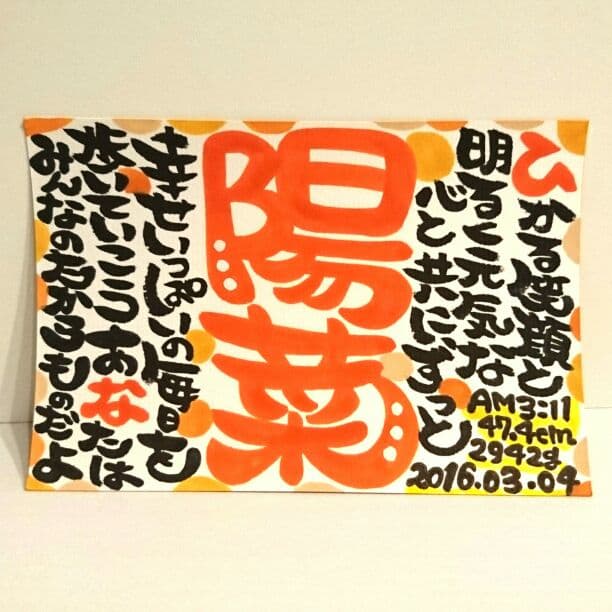 ひかる笑顔と
明るく元気な
心と共にずっと
AM3:11
47.4cm
2942g
2016.03.04
陽菜
幸せいっぱいの毎日を
歩いていこうあなたは
みんなのたからものだよ